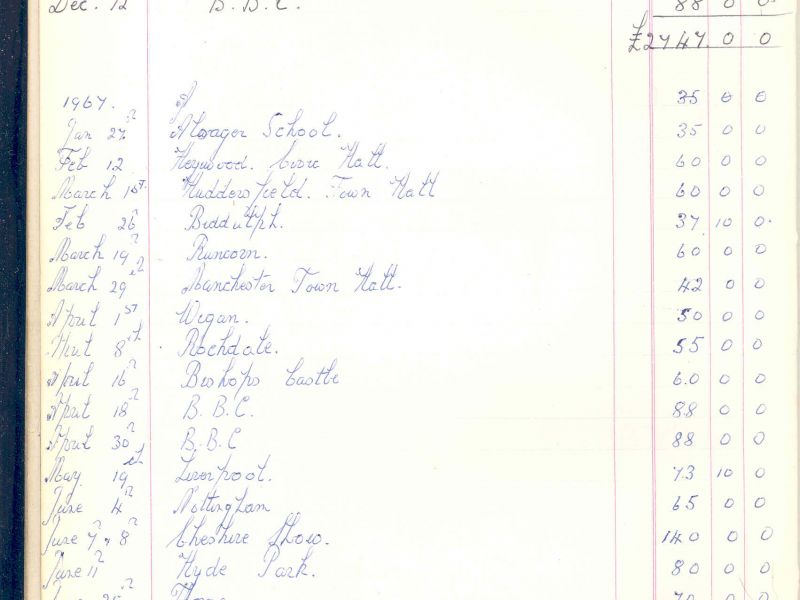 Dec. 12 B.B.C. 88 0 0
£2747. 0 0
1967. 35 0 0
Jan 27 School. 35 0 0
Feb 12 Heywood. Civic Hall. 60 0 0
March 1st. Huddersfield. Town Hall 60 0 0
Feb 26 Biddulph. 37 10 0.
March 19 Runcorn. 60 0 0
March 29th Manchester Town Hall. 42 0 0
April 1st Wigan. 50 0 0
8th Rochdale. 55 0 0
April 16 Bishops Castle 60 0 0
April 18 B.B.C. 88 0 0
April 30 B.B.C 88 0 0
May. 19th Liverpool. 73 10 0
June 4 Nottingham 65 0 0
June 7 8 Cheshire Show. 140 0 0
June 11 Hyde Park. 80 0 0
70 0 0